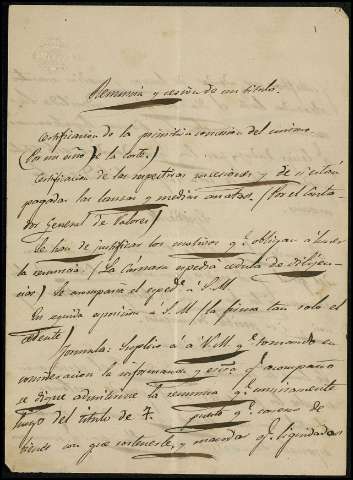 Renuncia y cesion de un titulo.
Certificacion de la primitiva concesion del mismo.
(Por un esno de la corte.)
Certificacion de las respectivas sucesiones y de si están
pagadas las lanzas y medias anatas. (Por el Conta-
dor General de Valores)
Se han de justificar los motivos qe obligan á hacer
la renuncia. (La Cámara expedirá cedula de diligen-
cias) Se acompaña el espede á S.M.
En seguida esposicion á S.M. (la firma tan solo el
cedente)
formula: Suplico á V.M. qe tomando en
consideracion la informacion y escra qe acompaño
se digne admitirme la renuncia qe
hago del titulo de F. puesto qe carezco de
bienes con que sostenerle, y mandar qe liquidadas